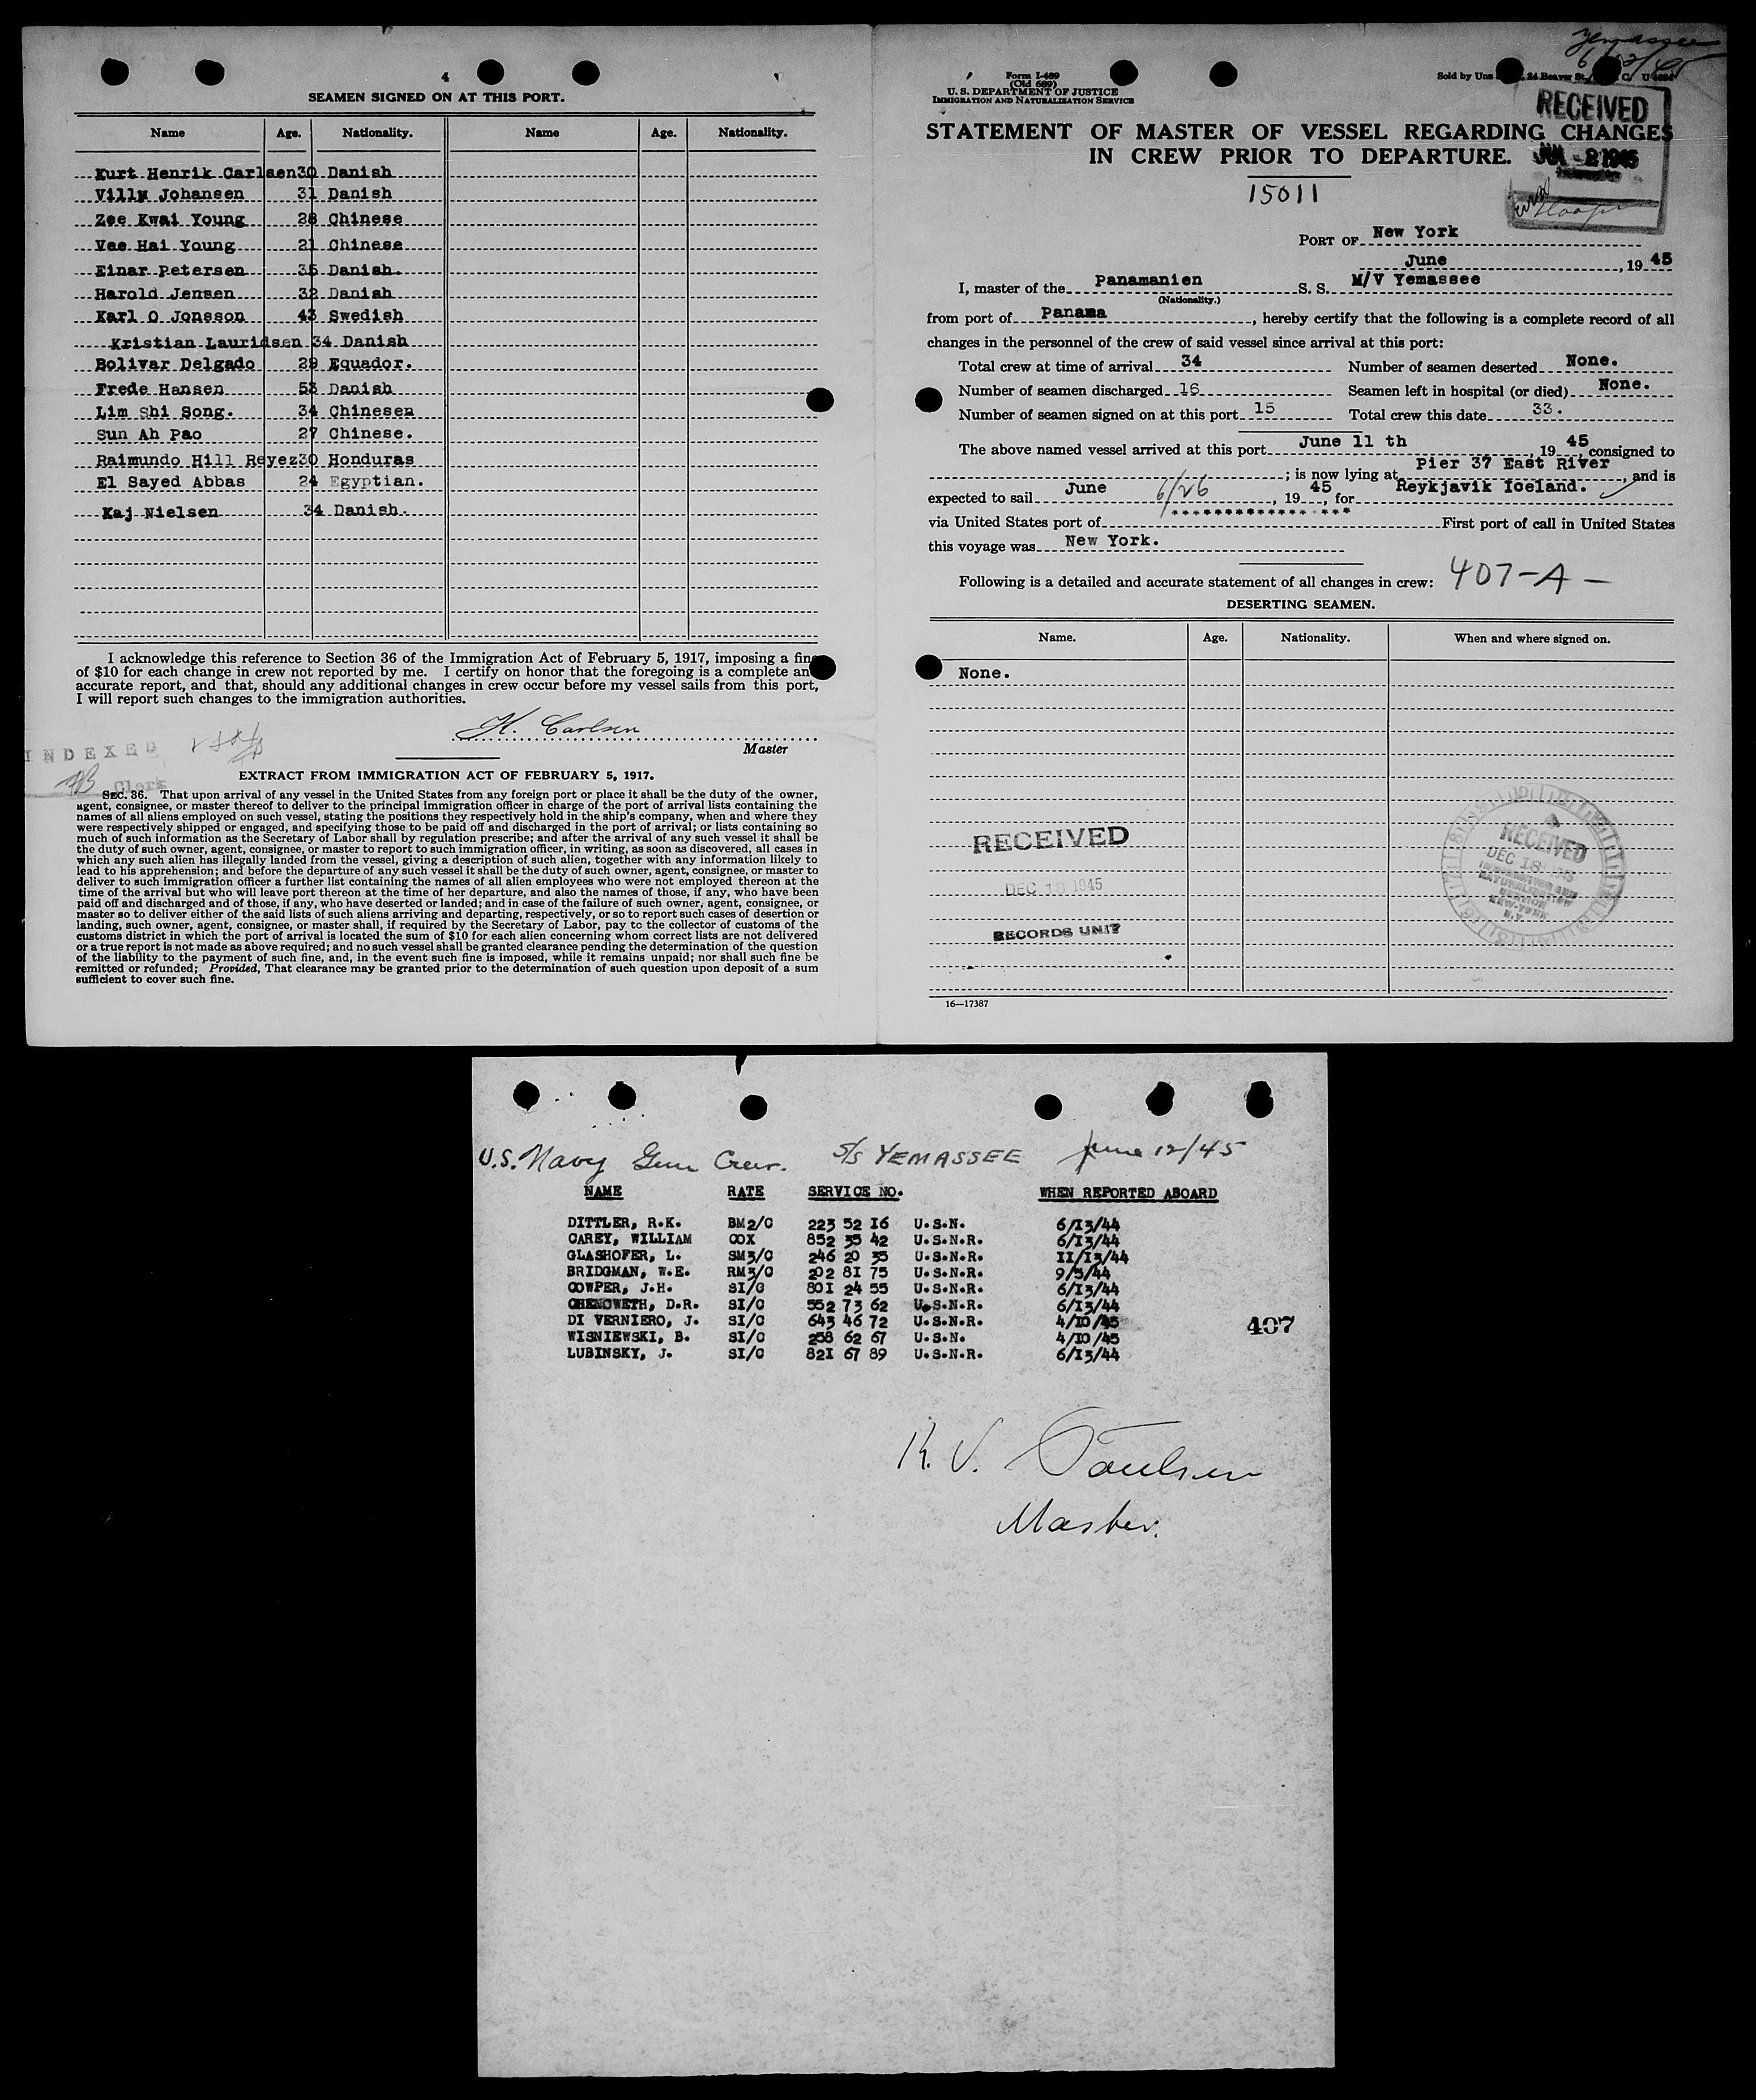 4
SEAMEN SIGNED ON AT THIS PORT.
Name Age. Nationality. Name Age. Nationality.
Kurt Henrik Carlsen 30 Danish
Villy Johansen 31 Danish
Zee Kwai Young 28 Chinese
Vee Hai Young 21 Chinese
Einar Petersen 35 Danish.
Harold Jensen 32 Danish
Karl O Jonsson 43 Swedish
Kristian Lauridsen 34 Danish
Bolivar Delgado 28 Equador.
Frede Hansen 53 Danish
Lim Shi Song. 34 Chinesen
Sun Ah Pao 27 Chinese.
Raimundo Hill Reyez 30 Honduras
El Sayed Abbas 24 Egyptian.
Kaj Nielsen 34 Danish.
I acknowledge this reference to Section 36 of the Immigration Act of February 5, 1917, imposing a fine
of $10 for each change in crew not reported by me. I certify on honor that the foregoing is a complete and
accurate report, and that, should any additional changes in crew occur before my vessel sails from this port,
I will report such changes to the immigration authorities.
H. Carlsen
Master
INDEXED
Clerk
EXTRACT FROM IMMIGRATION ACT OF FEBRUARY 5, 1917.
SEC. 36. That upon arrival of any vessel in the United States from any foreign port or place it shall be the duty of the owner,
agent, consignee, or master thereof to deliver to the principal immigration officer in charge of the port of arrival lists containing the
names of all aliens employed on such vessel, stating the positions they respectively hold in the ship's company, when and where they
were respectively shipped or engaged, and specifying those to be paid off and discharged in the port of arrival; or lists containing so
much of such information as the Secretary of Labor shall by regulation prescribe; and after the arrival of any such vessel it shall be
the duty of such owner, agent, consignee, or master to report to such immigration officer, in writing, as soon as discovered, all cases in
which any such alien has illegally landed from the vessel, giving a description of such alien, together with any information likely to
lead to his apprehension; and before the departure of any such vessel it shall be the duty of such owner, agent, consignee, or master to
deliver to such immigration officer a further list containing the names of all alien employees who were not employed thereon at the
time of the arrival but who will leave port thereon at the time of her departure, and also the names of those, if any, who have been
paid off and discharged and of those, if any, who have deserted or landed; and in case of the failure of such owner, agent, consignee, or
master so to deliver either of the said lists of such aliens arriving and departing, respectively, or so to report such cases of desertion or
landing, such owner, agent, consignee, or master shall, if required by the Secretary of Labor, pay to the collector of customs of the
customs district in which the port of arrival is located the sum of $10 for each alien concerning whom correct lists are not delivered
or a true report is not made as above required; and no such vessel shall be granted clearance pending the determination of the question
of the liability to the payment of such fine, and, in the event such fine is imposed, while it remains unpaid; nor shall such fine be
remitted or refunded; Provided, That clearance may be granted prior to the determination of such question upon deposit of a sum
sufficient to cover such fine.
Yemassee
Form I-489
(Old 689)
U. S. DEPARTMENT OF JUSTICE
IMMIGRATION AND NATURALIZATION SERVICE
Sold by Unz 24 Beaver St.
RECEIVED
JUL -2 1945
STATEMENT OF MASTER OF VESSEL REGARDING CHANGES
IN CREW PRIOR TO DEPARTURE.
15011
PORT OF New York
June , 19 45
I, master of the Panamanien S. S. M/V Yemassee
(Nationality.)
from port of Panama , hereby certify that the following is a complete record of all
changes in the personnel of the crew of said vessel since arrival at this port:
Total crew at time of arrival 34 Number of seamen deserted None.
Number of seamen discharged 16 Seamen left in hospital (or died) None.
Number of seamen signed on at this port 15 Total crew this date 33.
The above named vessel arrived at this port June 11 th , 19 45, consigned to
; is now lying at Pier 37 East River , and is
expected to sail June 6/26 , 19 45 , for Reykjavik Iceland.
via United States port of First port of call in United States
this voyage was New York.
Following is a detailed and accurate statement of all changes in crew: 407-A-
DESERTING SEAMEN.
Name. Age. Nationality. When and where signed on.
None.
RECEIVED
DEC 18 1945
RECORDS UNIT
RECEIVED
DEC 18
IMMIGRATION AND
NATURALIZATION
SERVICE
NEW YORK
N.Y.
16—17387
U.S. Navy Gun Crew. S/S YEMASSEE June 12/45
NAME RATE SERVICE NO. WHEN REPORTED ABOARD
DITTLER, R.K. BM2/C 223 52 16 U.S.N. 6/13/44
CAREY, WILLIAM COX 852 35 42 U.S.N.R. 6/13/44
GLASHOFER, L. SM3/C 246 20 35 U.S.N.R. 11/13/44
BRIDGMAN, W.E. RM3/C 202 81 75 U.S.N.R. 9/5/44
COWPER, J.H. SI/C 801 24 55 U.S.N.R. 6/13/44
CHENOWETH, D.R. SI/C 552 73 62 U.S.N.R. 6/13/44
DI VERNIERO, J. SI/C 643 46 72 U.S.N.R. 4/10/45
WISNIEWSKI, B. SI/C 258 62 67 U.S.N. 4/10/45
LUBINSKY, J. SI/C 821 67 89 U.S.N.R. 6/13/44
407
K. V. Poulsen
Master.